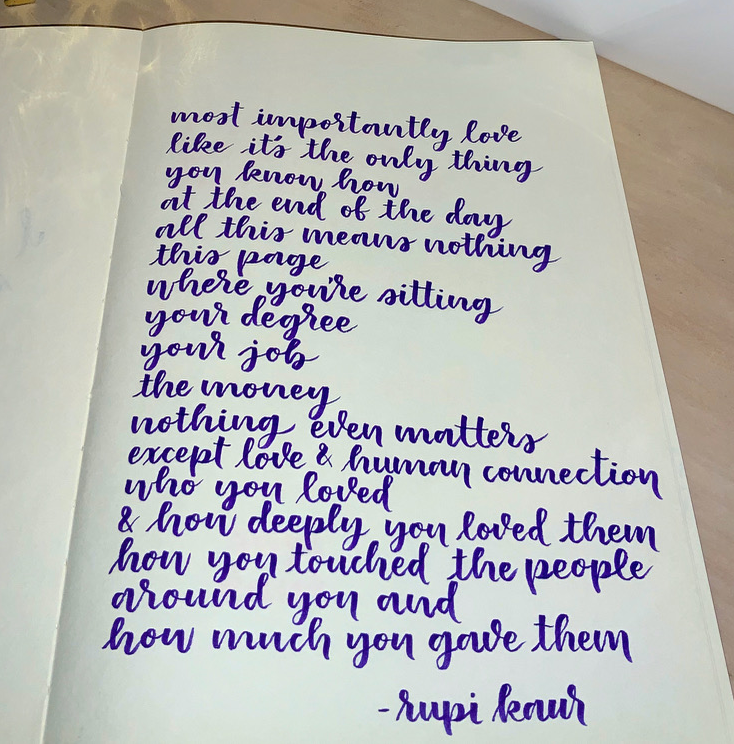 most importantly love
like it's the only thing
you know how
at the end of the day
all this means nothing
this page
where you're sitting
your degree
your job
the money
nothing even matters
except love & human connection
who you loved
& how deeply you loved them
how you touched the people
around you and
how much you gave them
-rupi kaur